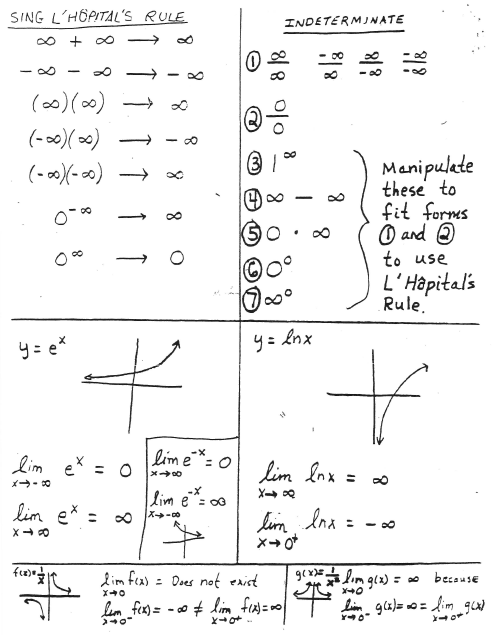 SING L'HÔPITAL'S RULE
∞ + ∞ → ∞
-∞ - ∞ → -∞
(∞)(∞) → ∞
(-∞)(∞) → -∞
(-∞)(-∞) → ∞
0^-∞ → ∞
0^∞ → 0
INDETERMINATE
① ∞/∞ -∞/∞ ∞/-∞ -∞/-∞
② 0/0
③ 1^∞
④ ∞ - ∞
⑤ 0 · ∞
⑥ 0^0
⑦ ∞^0
Manipulate
these to
fit forms
① and ②
to use
L'Hôpital's
Rule.
y = e^x
lim x→-∞ e^x = 0
lim x→∞ e^x = ∞
lim x→∞ e^-x = 0
lim x→-∞ e^-x = ∞
y = lnx
lim x→∞ lnx = ∞
lim x→0+ lnx = -∞
f(x)=1/x
lim x→0 f(x) = Does not exist
lim x→0- f(x) = -∞ ≠ lim x→0+ f(x) = ∞
lim x→0 g(x) = ∞ because
lim x→0- g(x) = ∞ = lim x→0+ g(x)